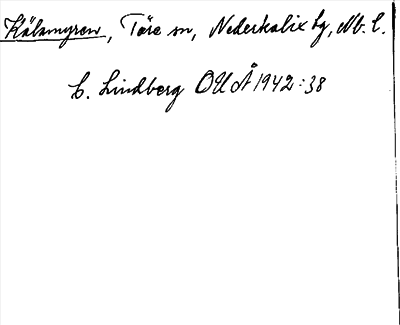 Kälsmyren, Töre sn, Nederkalix tg, Nb. l.
C. Lindberg OUÅ 1942:38